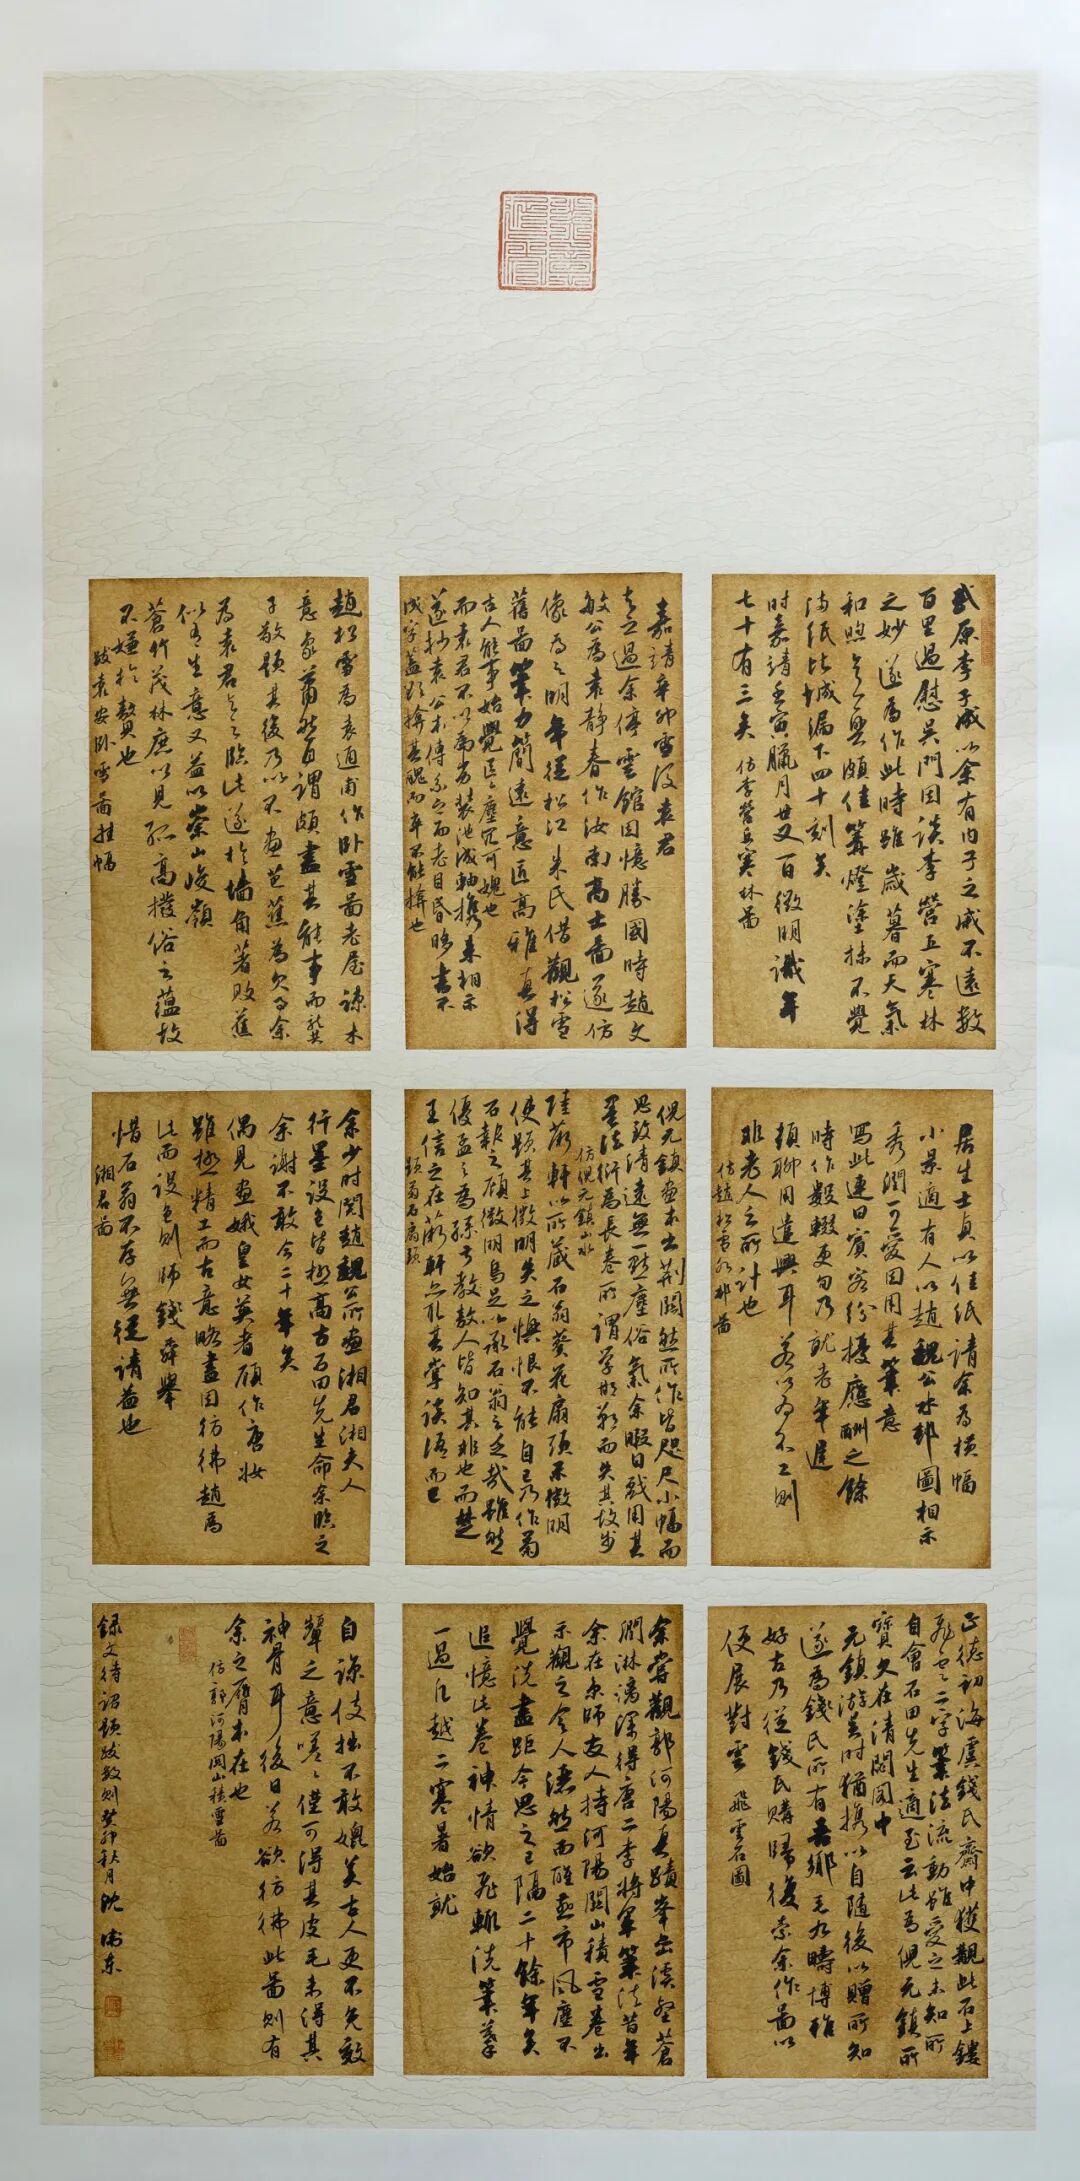 武原李子成以余有内子之戚不遠數
百里過慰吴門因談李營丘寒林
之妙遂為作此時雖歲暮而天氣
和煦意興頗佳篝燈塗抹不覺
滿紙比城漏下四十刻矣
時嘉靖壬寅臘月廿又一日徵明識年
七十有三矣 仿李營丘寒林圖
嘉靖辛卯雪後袁君
與之過余停雲館因憶勝國時趙文
敏公為袁靜春作汝南高士圖遂仿
像為之明年從松江朱氏借觀松雪
舊圖筆力簡遠意匠高雅真得
古人能事始覺區區塵冗可媿也
而袁君不以為劣裝池成軸携來相示
遂抄袁公本傳系之而老目昏眵書不
成字蓋欲揜其醜而卒不能揜也
趙松雪為袁通甫作卧雪圖老屋疎木
意象蕭然自謂頗盡其能事而龔
子敬題其後乃以不畫芭蕉為欠事余
為袁君與之臨此遂於墻角著敗蕉
似有生意又益以崇山峻嶺
蒼竹茂林庶以見孤高拔俗之藴故
不嫌於贅也
跋袁安卧雪圖挂幅
居生士貞以佳紙請余為横幅
小景適有人以趙魏公水邨圖相示
秀潤可愛因用其筆意
寫此連日賓客紛擾應酬之餘
時作數輟更旬乃就老年遲
頓聊用遣興耳若以為不工則
非老人之所計也
仿趙松雪水邨圖
倪元鎮畫本出荆關然所作皆咫尺小幅而
思致清遠無一點塵俗氣余暇日戲用其
墨法衍為長卷所謂學邯鄲而失其故步
仿倪元鎮山水
陸葯軒以所藏石翁葵花扇頭示徵明
使題其上徵明失之懊恨不能自已乃作菊
石報之顧徵明烏足以承石翁之乏哉雖然
優孟之為孫叔敖人皆知其非也而楚
王信之在葯軒亦取其掌談語而已
題菊石扇頭
余少時閲趙魏公所畫湘君湘夫人
行墨設色皆極高古石田先生命余臨之
余謝不敢今二十年矣
偶見畫娥皇女英者顧作唐妝
雖極精工而古意略盡因彷彿趙為
此而設色則師錢舜舉
惜石翁不存無從請益也
湘君圖
正德初海虞錢氏齋中獲觀此石上鏤
飛雲二字筆法流動雖愛之未知所
自會石田先生適至云此為倪元鎮所
寶久在清閟閣中
元鎮游吴時猶携以自隨後以贈所知
遂為錢氏所有吾鄉毛九疇博雅
好古乃從錢氏購歸復索余作圖以
便展對云 飛雲石圖
余嘗觀郭河陽真蹟峯巒溪壑蒼
潤淋漓深得唐二李將軍筆法昔年
余在京師友人持河陽關山積雪卷出
示觀之令人灑然而醒燕市風塵不
覺洗盡距今思之已隔二十餘年矣
追憶此卷神情欲飛輒洗筆摹
一過凡越二寒暑始就
自諒伎拙不敢媲美古人更不免效
顰之意嗟嗟僅可得其皮毛未得其
神骨耳後日若欲彷彿此圖則有
余之膺本在也
仿郭河陽關山積雪圖
録文待詔題跋數則癸卯秋月沈衛東